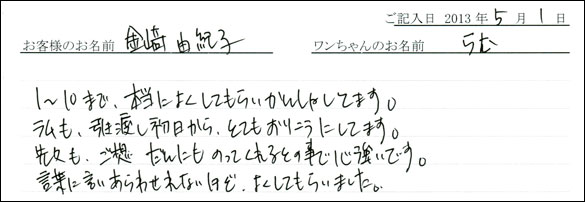 ご記入日 2013年 5月 1日
お客様のお名前 金﨑由紀子 ワンちゃんのお名前 らむ
1〜10まで、本当によくしてもらいかんしゃしてます。
ラムも、引き渡し初日から、とてもおりこうにしてます。
先々も、ご相 だんにものってくれるその事で心強いです。
言葉に言いあらわせれないほど、よくしてもらいました。